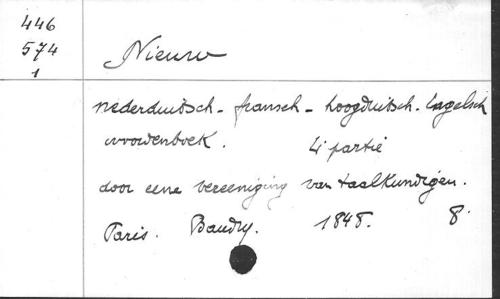 446
574
1
Nieuw
nederduitsch - fransch - hoogduitsch - Engelsch
woordenboek. 4e partie
door eene vereeniging van taalkundigen.
Paris. Baudry. 1848. 8°